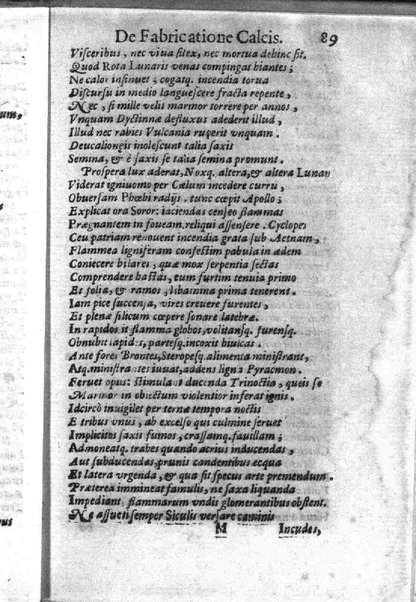 De Fabricatione Calcis. 89
Visceribus, nec viua sitex, nec mortua debinc sit.
Quod Rota Lunaris venas compingat hiantes;
Ne calor insinuet; cogatq. incendia torua
Discursu in medio languescere fracta repente,
Nec, si mille velis marmor torrere per annos,
Vnquam Dyctinnæ defluxus adedent illud,
Illud nec rabies Vulcania ruperit vnquam.
Deucaliongis inolescunt talia saxis
Semina, & è saxis se talia semina promunt.
Prospera lux aderat, Noxq. altera, & altera Lunam
Viderat igniuomo per Cælum incedere curru,
Obuersam Phœbi radijs. tunc cœpit Apollo;
Explicat ora Soror: iaciendas censeo flammas
Prægnantem in foueam. reliqui assensere. Cyclopes
Ceu patriam renouent incendia grata sub Aetnam,
Flammea lignifer am confestim pabula in ædem
Coniecere hilares; quæ mox serpentia sectas
Comprendere hastas, tum furtim tenuia primo
Et folia, & ramos, libamina prima tenerent.
Iam pice succensa, vires creuere furentes,
Et plenæ silicum cœpere sonare latebræ.
In rapidos it flamma globos, volitansq. furensq.
Obnubit lapides, partesq. incoxit hiulcas.
Ante fores Brontes, Steropesq. alimenta ministrant,
Atq. ministrantes iuuat, addens ligna Pyracmon.
Feruet opus: stimulant ducenda Trinoctia, queis se
Marmor in obiectum violentior inferat ignis.
Idcircò inuigilet per terna tempora noctis
E tribus vnus, ab excelso qui culmine seruet
Implicitos saxis fumos, crassamq. fauillam;
Admoneatq. trabes quando acrius inducendas,
Aut subducendas, prunis candentibus ecqua
Et latera vrgenda, & qua sit specus arte premendum.
Præterea immineat famulis, ne saxa liquanda
Impediant, flammarum vndis glomerantibus obstent.
Ne assueti semper Siculis versare caminis
M Incudes,